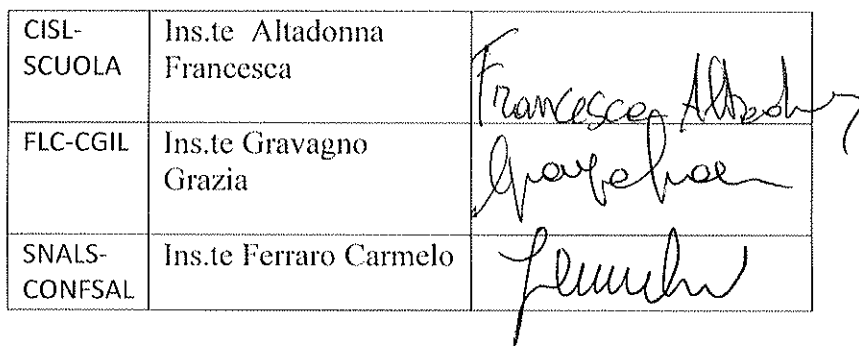 CISL-
SCUOLA
Ins.te Altadonna
Francesca
Francesca
FLC-CGIL
Ins.te Gravagno
Grazia
SNALS-
CONFSAL
Ins.te Ferraro Carmelo